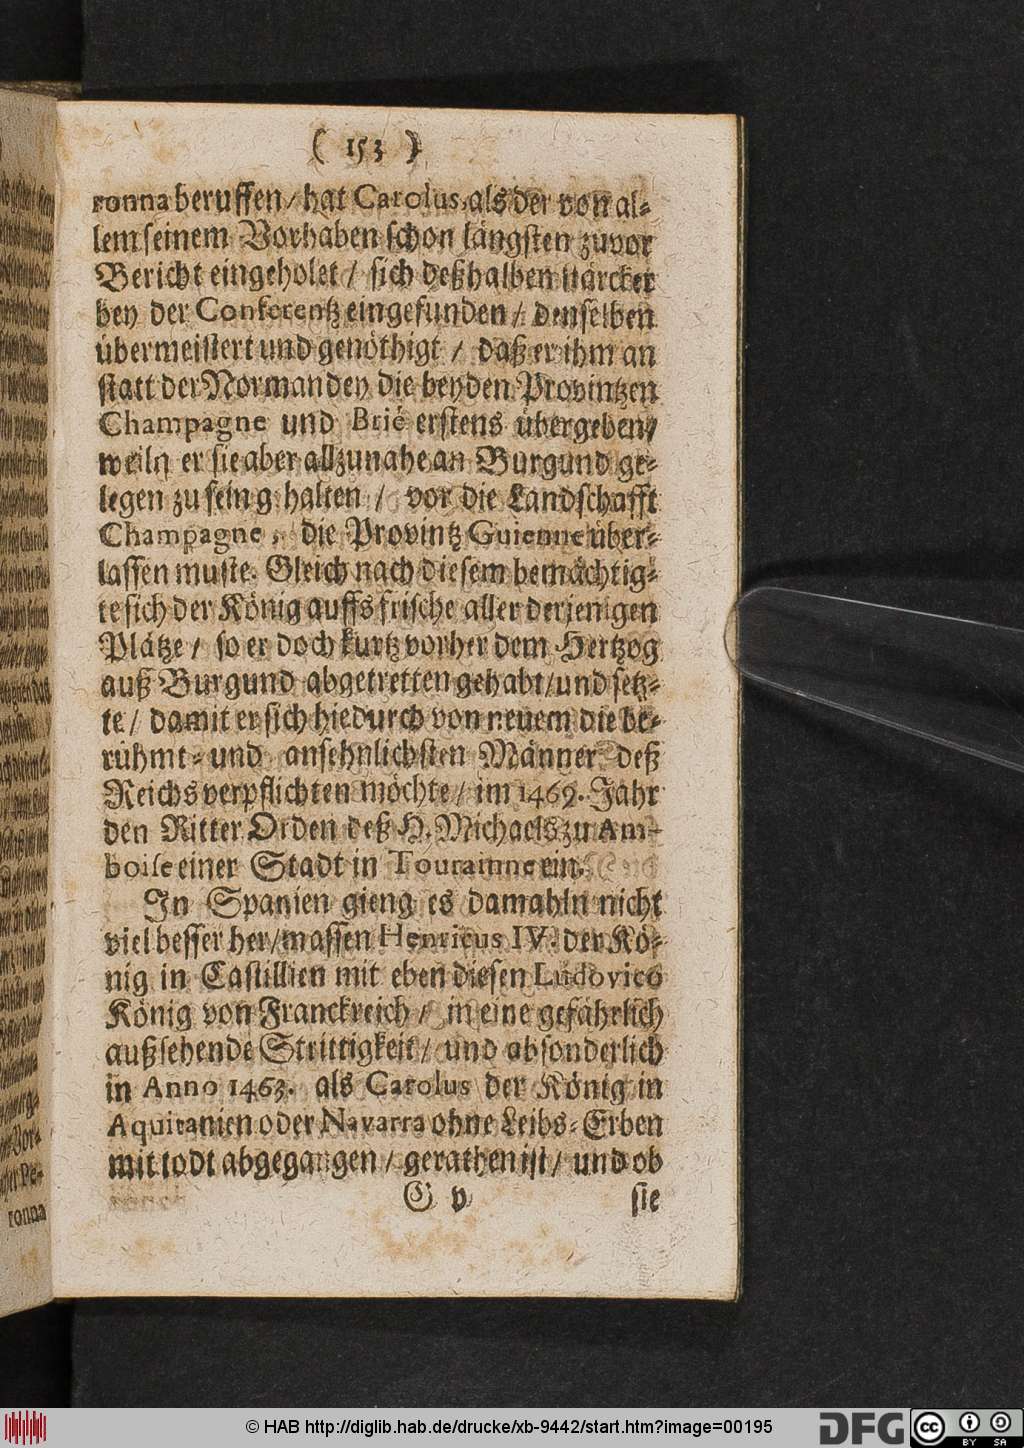 ( 153 )
ronna beruffen / hat Carolus, als der von al-
lem seinem Vorhaben schon längsten zuvor
Bericht eingeholet / sich deßhalben stärcker
bey der Conferentz eingefunden / denselben
übermeistert und genöthigt / daß er ihm an
statt der Normandey die beyden Provintzen
Champagne und Brié erstens übergeben /
weiln er sie aber allzunahe an Burgund ge-
legen zu sein g halten / vor die Landschafft
Champagne, die Provintz Guienne über-
lassen muste. Gleich nach diesem bemächtig-
te sich der König auffs frische aller derjenigen
Plätze / so er doch kurtz vorher dem Hertzog
auß Burgund abgetretten gehabt / und setz-
te / damit er sich hiedurch von neuem die be-
rühmt- und ansehnlichsten Männer deß
Reichs verpflichten möchte / im 1469. Jahr
den Ritter Orden deß H. Michaels zu Am-
boise einer Stadt in Tourainne ein.
In Spanien gieng es damahln nicht
viel besser her / massen Henricus IV. der Kö-
nig in Castillien mit eben diesen Ludovico
König von Franckreich / in eine gefährlich
außsehende Strittigkeit / und absonderlich
in Anno 1463. als Carolus der König in
Aquitanien oder Navarra ohne Leibs-Erben
mit todt abgegangen / gerathen ist / und ob
G v sie
ronna
© HAB http://diglib.hab.de/drucke/xb-9442/start.htm?image=00195
DFG
cc BY SA